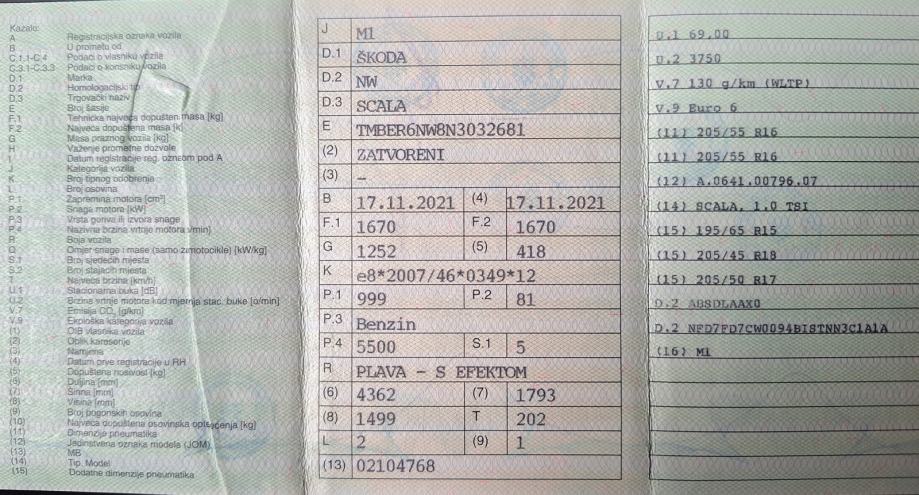 Kazalo:
A Registracijska oznaka vozila
B U prometu od
C.1.1-C.4 Podaci o vlasniku vozila
C.3.1-C.3.3 Podaci o korisniku vozila
D.1 Marka
D.2 Homologacijski tip
D.3 Trgovački naziv
E Broj šasije
F.1 Tehnička najveća dopušten masa [kg]
F.2 Najveća dopuštena masa [k
G Masa praznog vozila [kg]
H Važenje prometne dozvole
I Datum registracije reg. oznakom pod A
J Kategorija vozila
K Broj tipnog odobrenja
L Broj osovina
P.1 Zapremina motora [cm³]
P.2 Snaga motora [kW]
P.3 Vrsta goriva ili izvora snage
P.4 Nazivna brzina vrtnje motora
R Boja vozila
Q Omjer snage i mase (samo za motocikle) [kW/kg]
S.1 Broj sjedećih mjesta
S.2 Broj stajaćih mjesta
T Najveća brzina [km/h]
U.1 Stacionarna buka [dB]
U.2 Brzina vrtnje motora kod mjerenja stac. buke [o/min]
V.7 Emisija CO₂ [g/km]
V.9 Ekološka kategorija vozila
(1) OIB vlasnika vozila
(2) Oblik karoserije
(3) Namjena
(4) Datum prve registracije u RH
(5) Dopuštena nosivost [kg]
(6) Duljina [mm]
(7) Širina [mm]
(8) Visina [mm]
(9) Broj pogonskih osovina
(10) Najveća dopuštena osovinska opterećenja [kg]
(11) Dimenzije pneumatika
(12) Jedinstvena oznaka modela (JOM)
(13) MB
(14) Tip. Model
(15) Dodatne dimenzije pneumatika
J M1
D.1 ŠKODA
D.2 NW
D.3 SCALA
E TMBER6NW8N3032681
(2) ZATVORENI
(3) –
B 17.11.2021 (4) 17.11.2021
F.1 1670 F.2 1670
G 1252 (5) 418
K e8*2007/46*0349*12
P.1 999 P.2 81
P.3 Benzin
P.4 5500 S.1 5
R PLAVA - S EFEKTOM
(6) 4362 (7) 1793
(8) 1499 T 202
L 2 (9) 1
(13) 02104768
U.1 69,00
U.2 3750
V.7 130 g/km (WLTP)
V.9 Euro 6
(11) 205/55 R16
(11) 205/55 R16
(12) A.0641.00796.07
(14) SCALA, 1.0 TSI
(15) 195/65 R15
(15) 205/45 R18
(15) 205/50 R17
D.2 ABSDLAAX0
D.2 NFD7FD7CW0094BISTNN3C1A1A
(16) M1